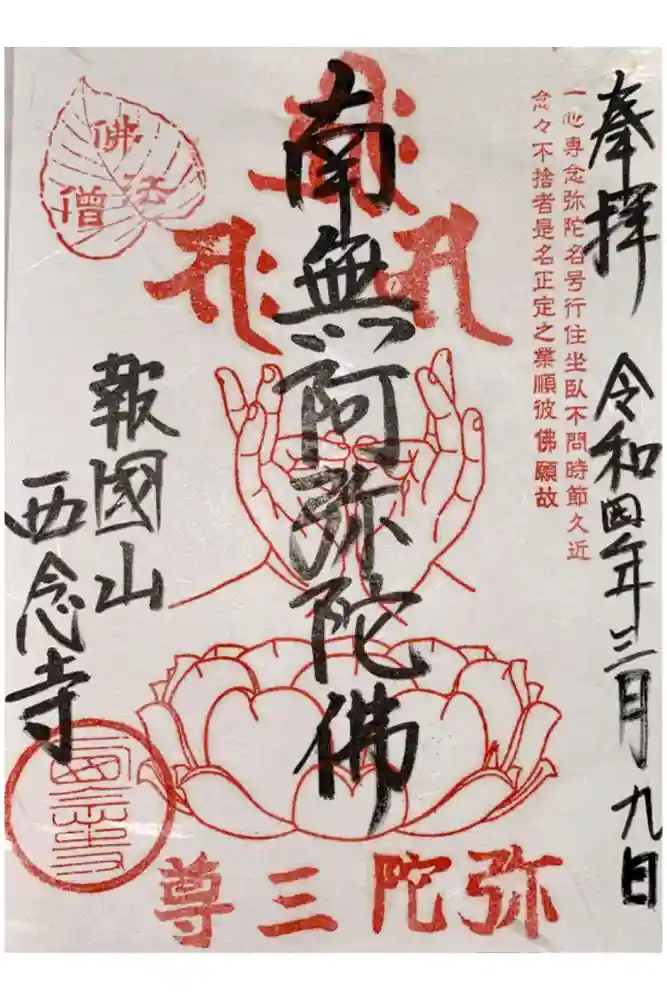 奉拝
令和四年三月九日
一心専念弥陀名号行住坐臥不問時節久近
念々不捨者是名正定之業順彼佛願故
南無阿弥陀佛
佛
法
僧
報國山
西念寺
弥陀三尊